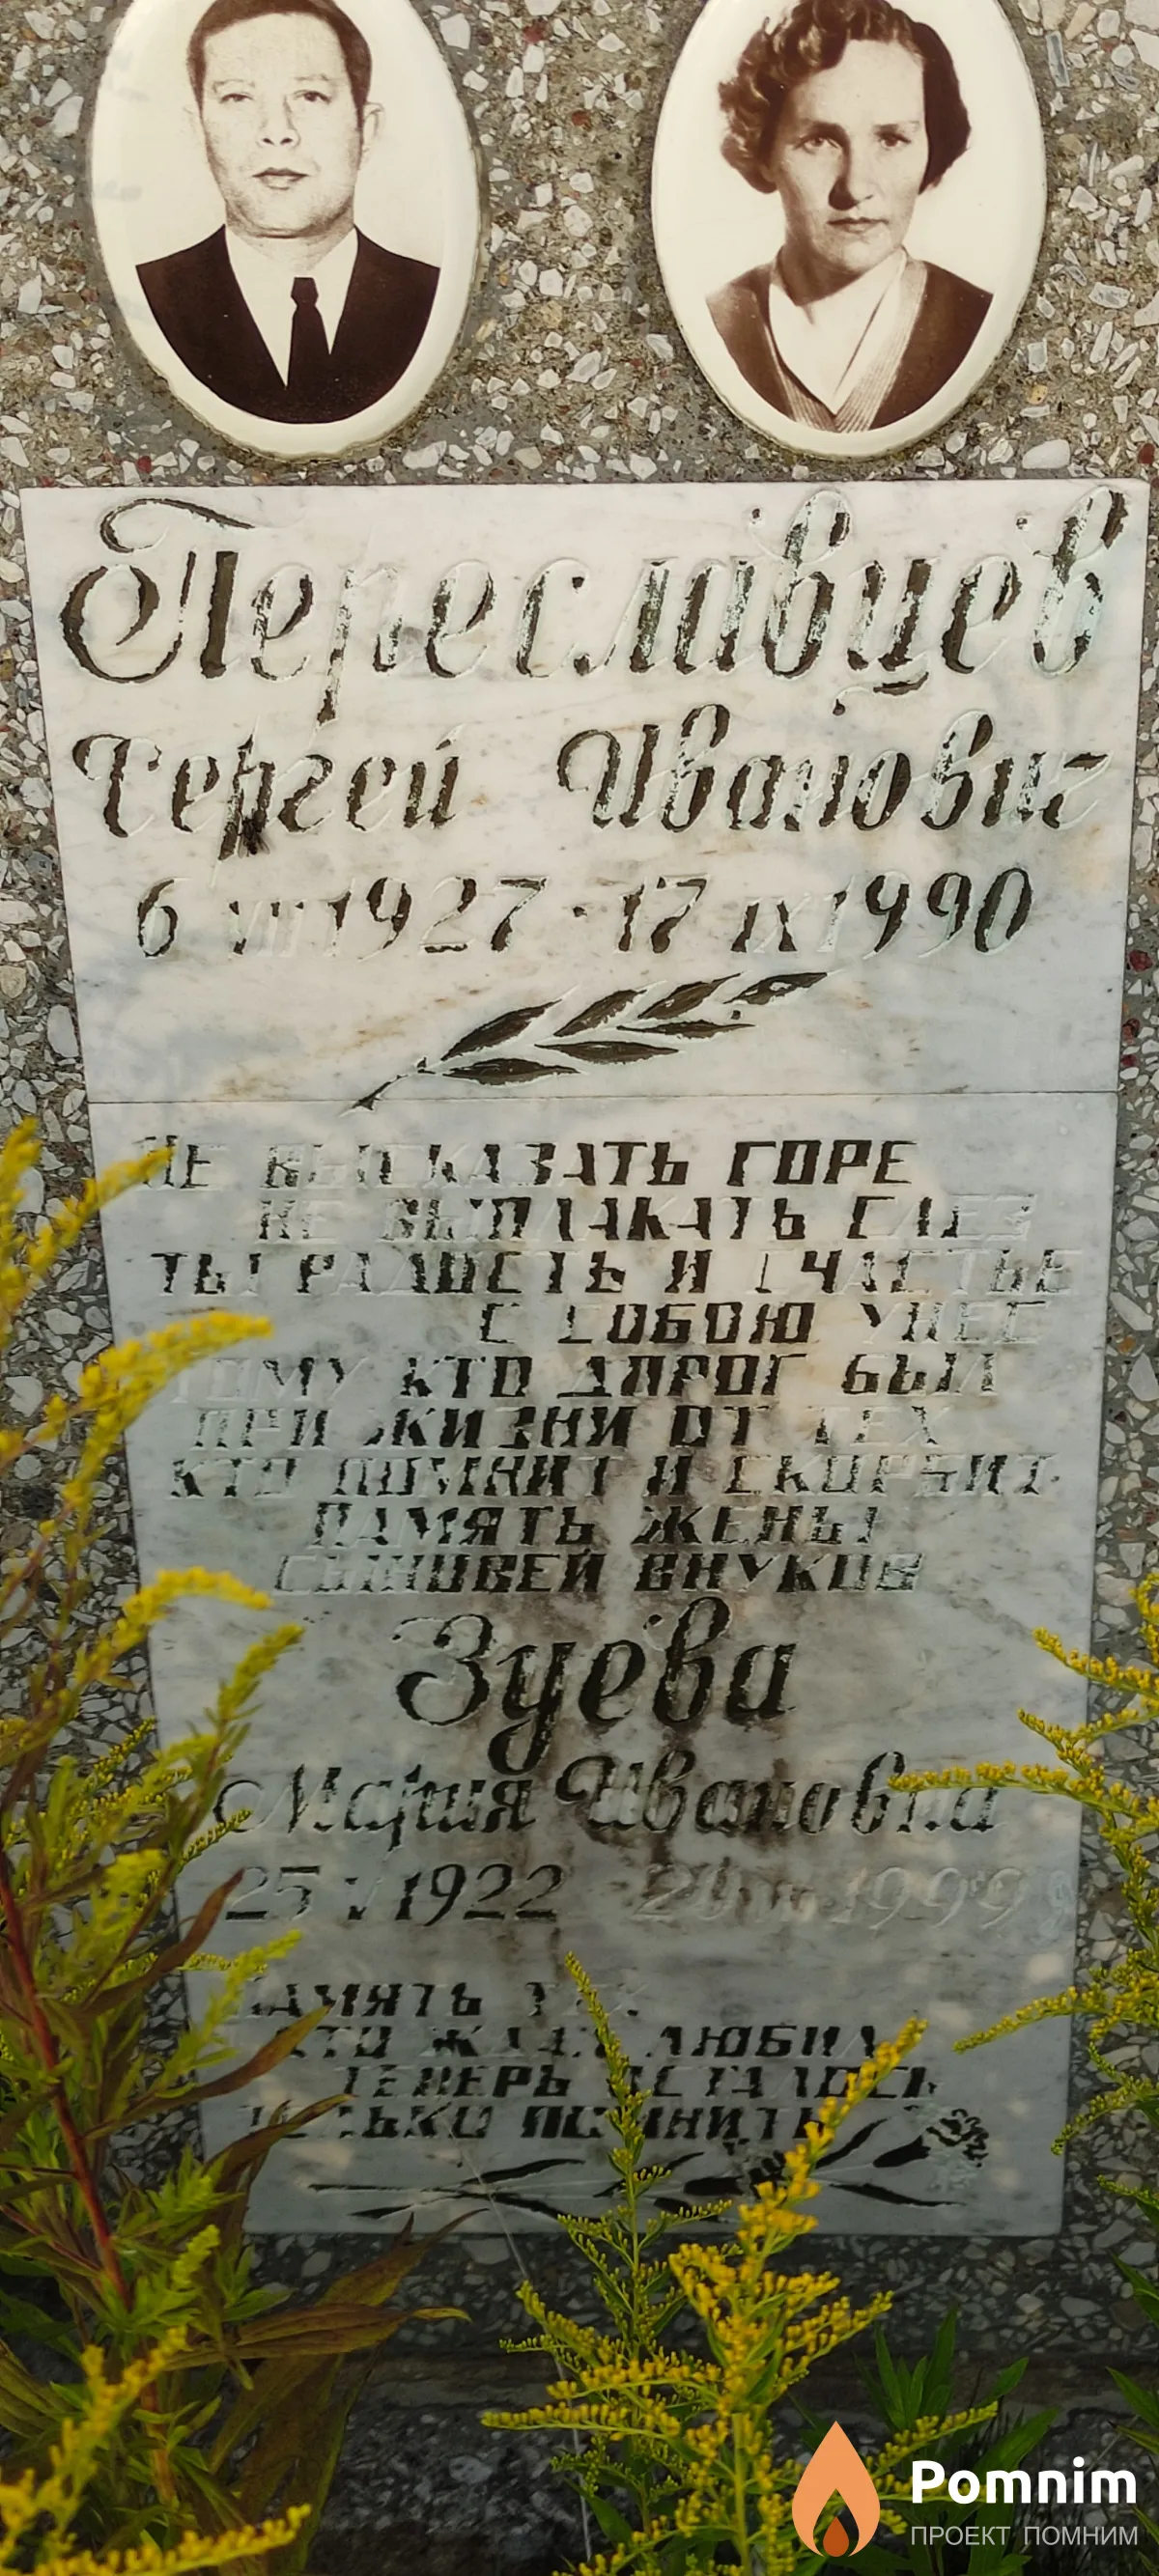 Переславцев
Сергей Иванович
6 VIII 1927 - 17 IX 1990
НЕ ВЫСКАЗАТЬ ГОРЕ
НЕ ВЫПЛАКАТЬ СЛЕЗ
ТЫ РАДОСТЬ И СЧАСТЬЕ
С СОБОЮ УНЕС
ТОМУ КТО ДОРОГ БЫЛ
ПРИ ЖИЗНИ ОТ ТЕХ
КТО ПОМНИТ И СКОРБИТ
ПАМЯТЬ ЖЕНЫ
СЫНОВЕЙ ВНУКОВ
Зуева
Мария Ивановна
25 1922 1999
ПАМЯТЬ ТЕХ
КТО ЖДАЛ ЛЮБИЛ
ТЕПЕРЬ ОСТАЛОСЬ
ТОЛЬКО ПОМНИТЬ
Pomnim
ПРОЕКТ ПОМНИМ